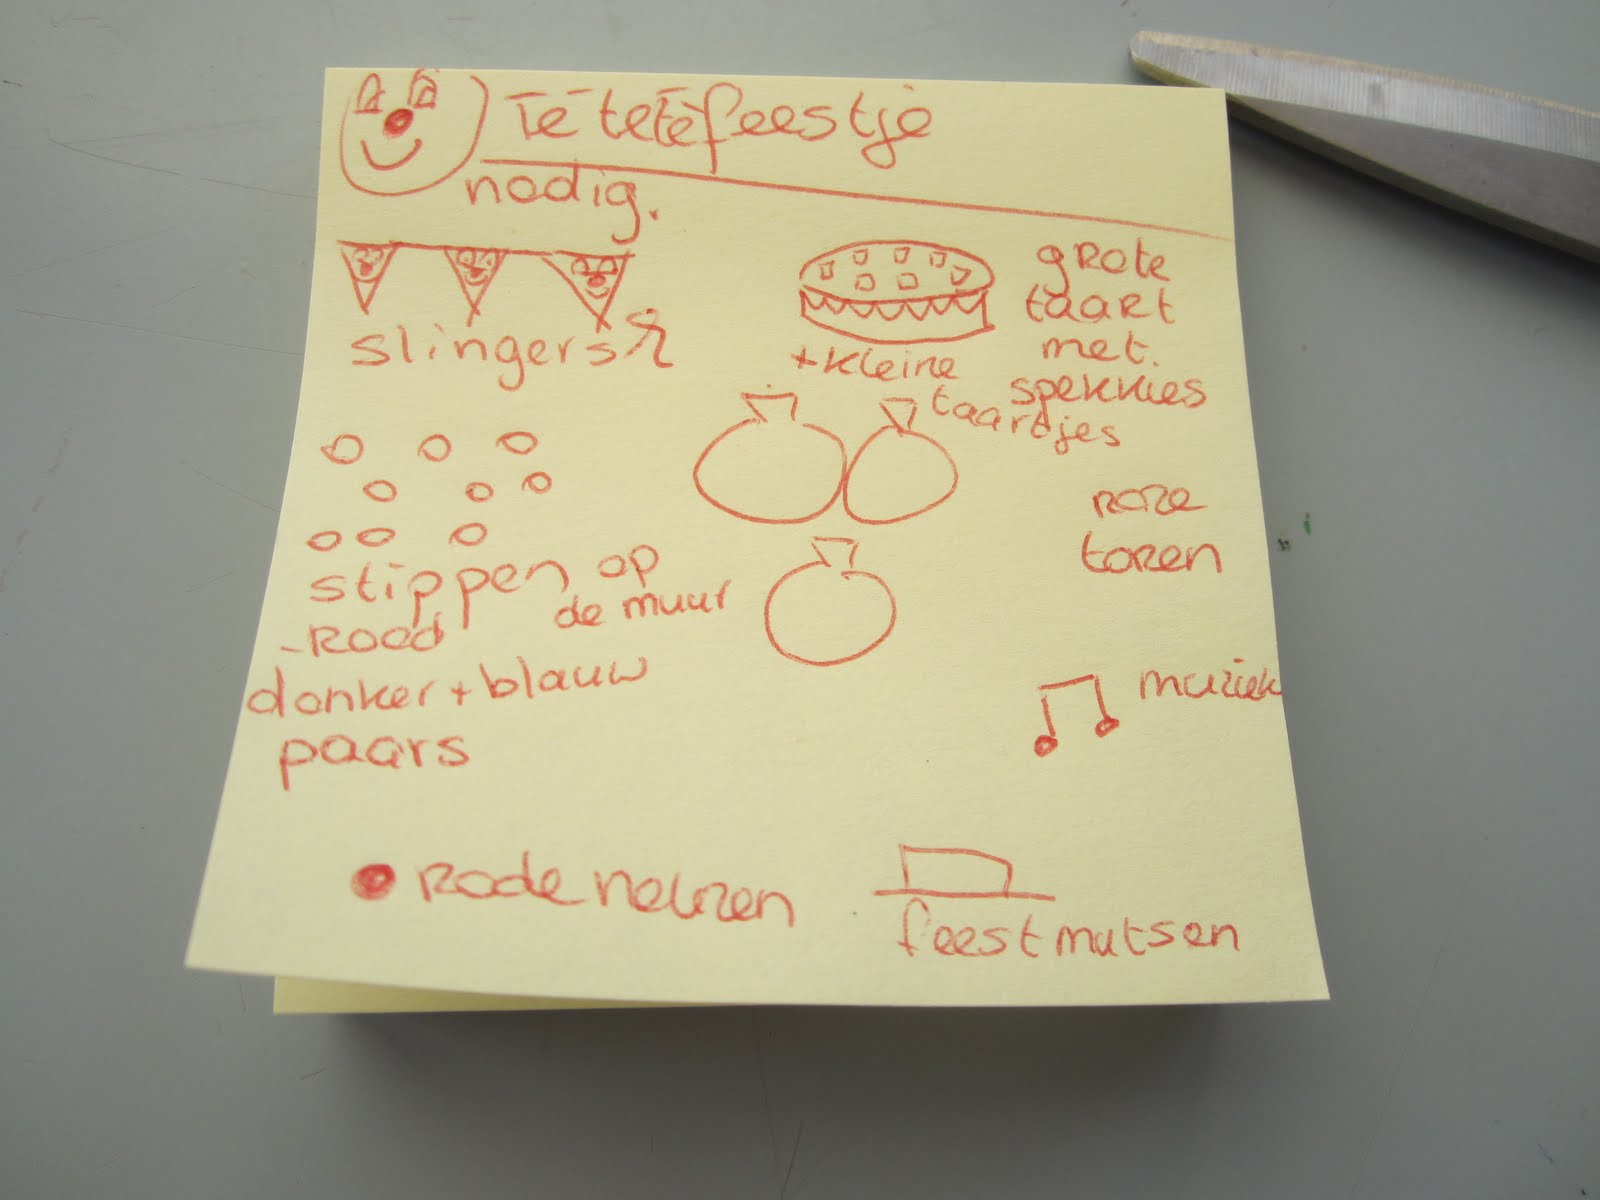 Tētetētēfeestje
nodig.
slingers
grote
taart
met.
spekkies
+ kleine
taartjes
stippen op
de muur
- Rood
donker + blauw
paars
roze
toren
muziek
Rode neuzen
feestmutsen